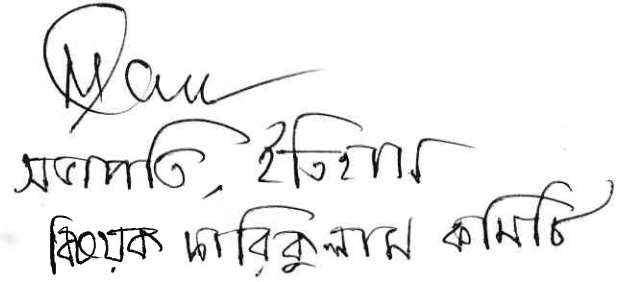 সভাপতি, ইতিহাস
বিষয়ক কারিকুলাম কমিটি